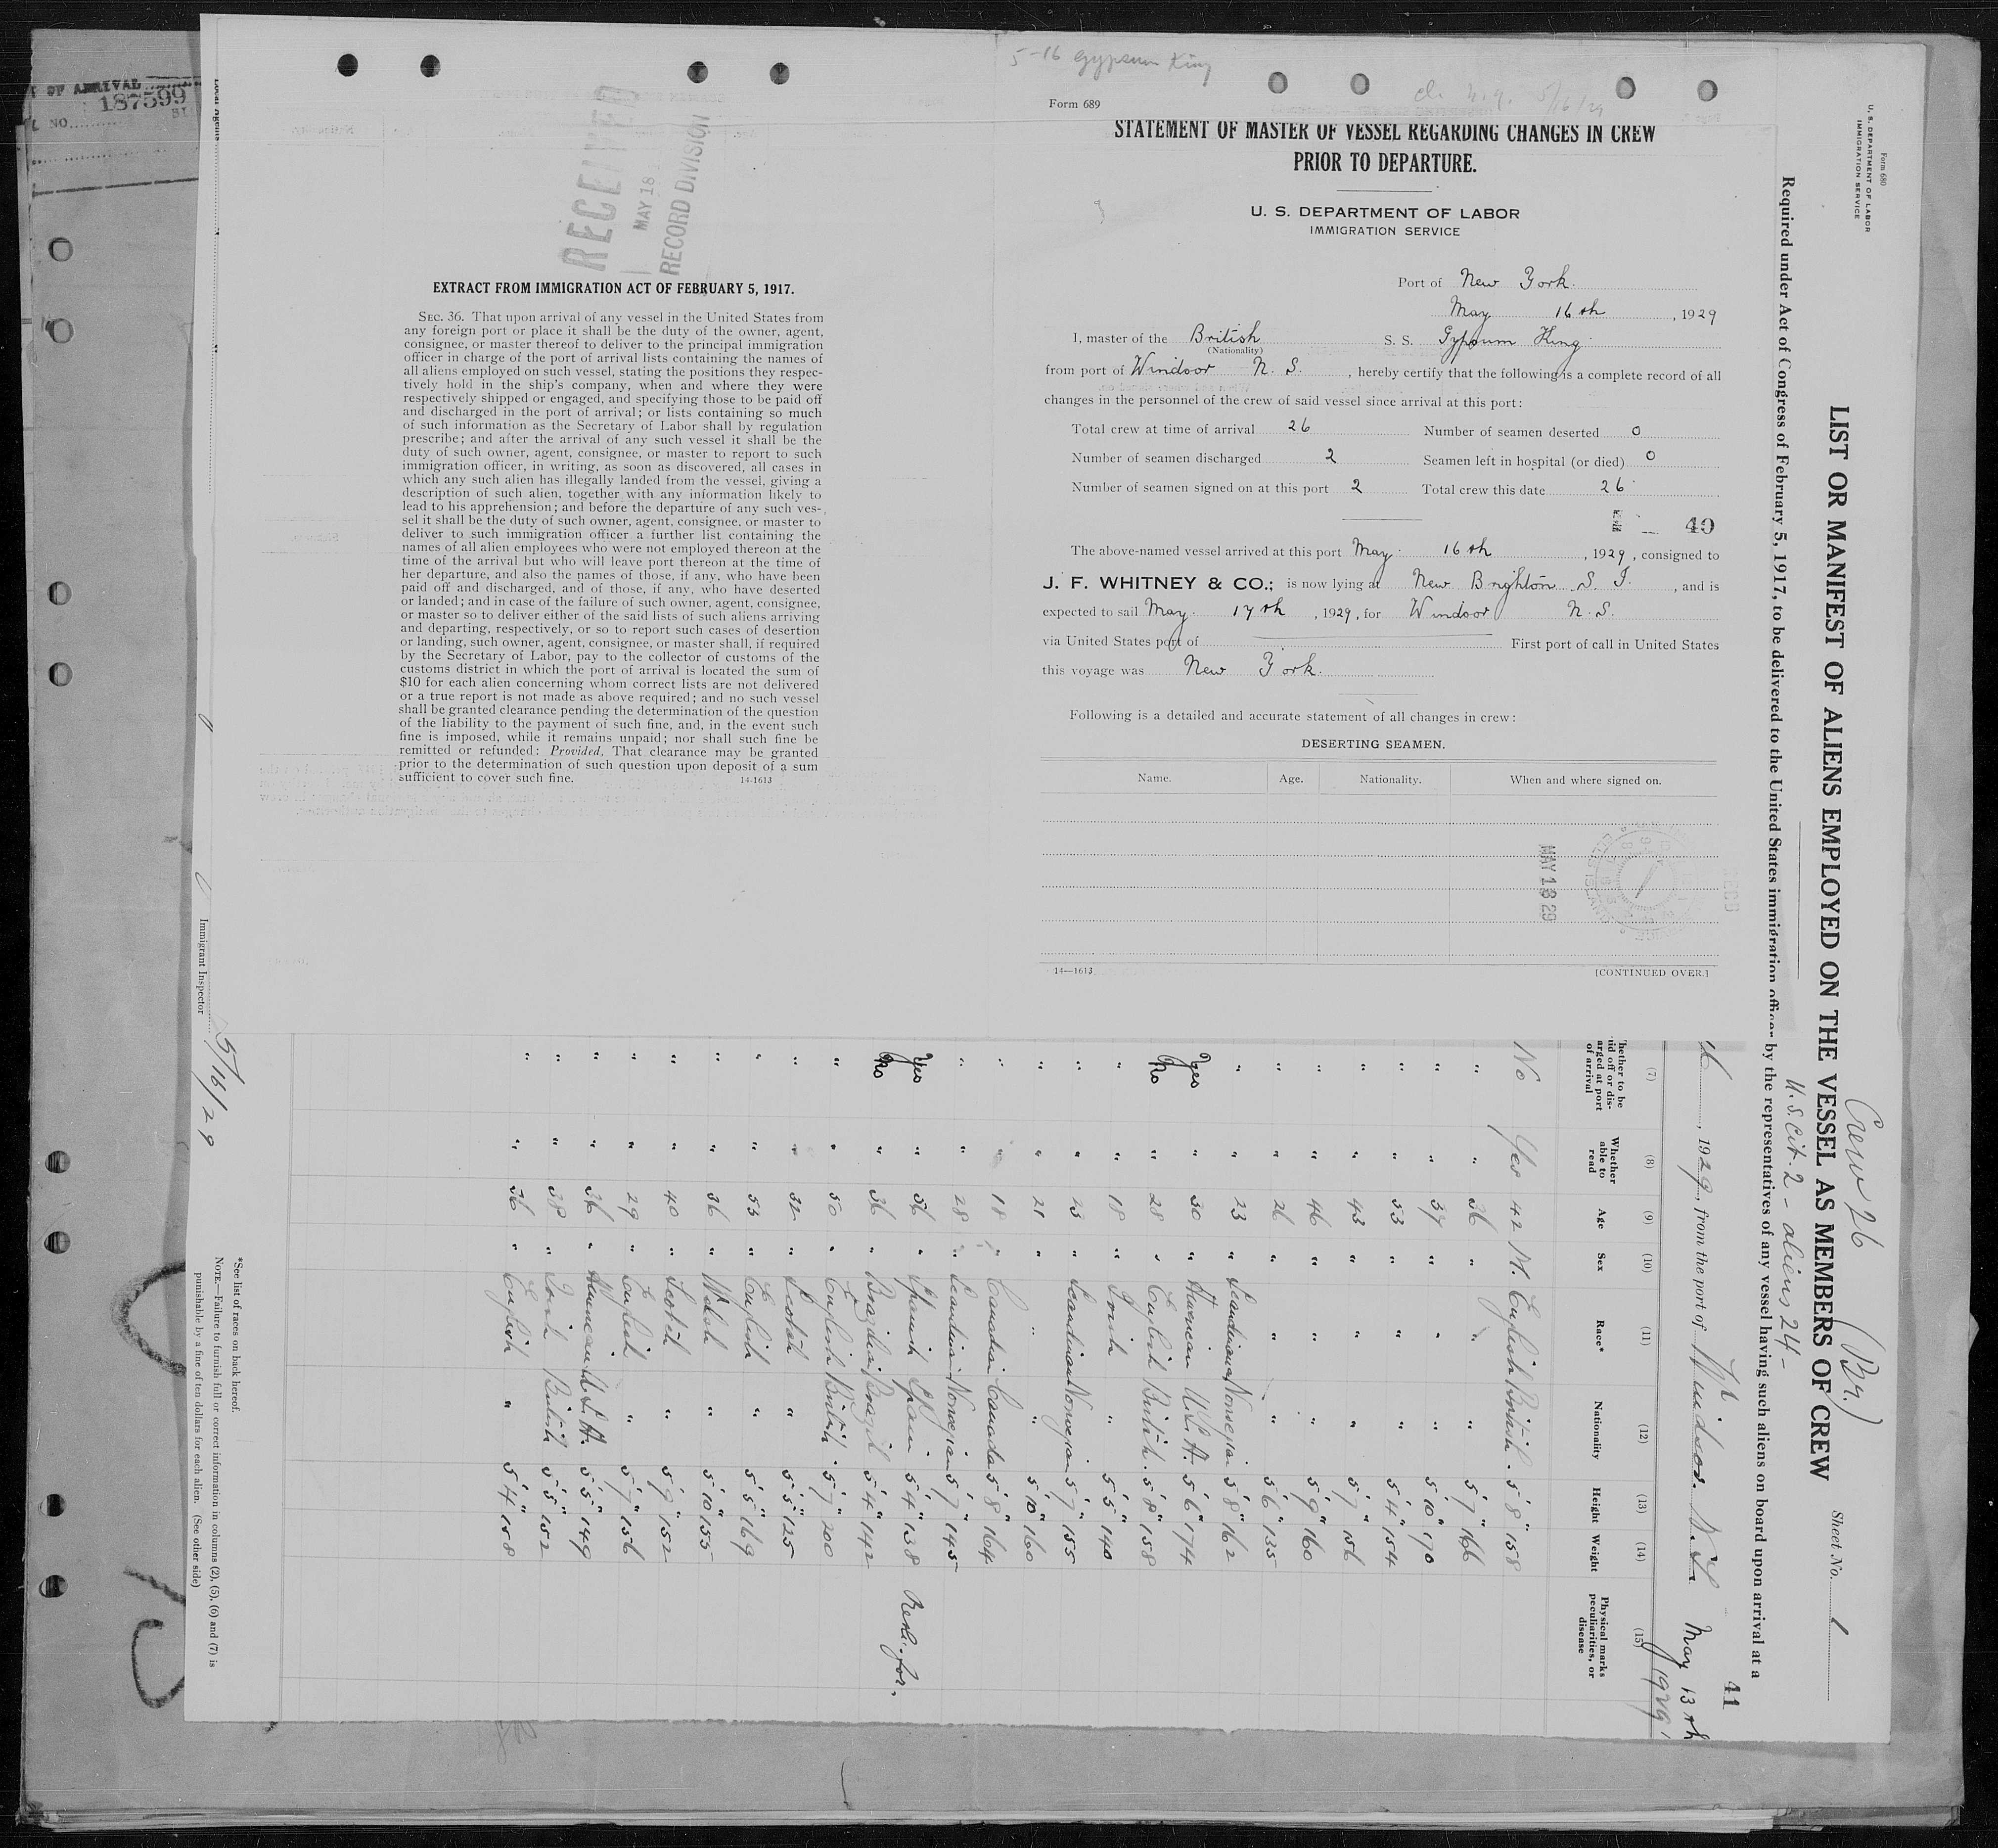 OF ARRIVAL
187599
NO.
5-16 Gypsum King
RECEIVED
MAY 18
RECORD DIVISION
EXTRACT FROM IMMIGRATION ACT OF FEBRUARY 5, 1917.
SEC. 36. That upon arrival of any vessel in the United States from
any foreign port or place it shall be the duty of the owner, agent,
consignee, or master thereof to deliver to the principal immigration
officer in charge of the port of arrival lists containing the names of
all aliens employed on such vessel, stating the positions they respec-
tively hold in the ship's company, when and where they were
respectively shipped or engaged, and specifying those to be paid off
and discharged in the port of arrival; or lists containing so much
of such information as the Secretary of Labor shall by regulation
prescribe; and after the arrival of any such vessel it shall be the
duty of such owner, agent, consignee, or master to report to such
immigration officer, in writing, as soon as discovered, all cases in
which any such alien has illegally landed from the vessel, giving a
description of such alien, together with any information likely to
lead to his apprehension; and before the departure of any such ves-
sel it shall be the duty of such owner, agent, consignee, or master to
deliver to such immigration officer a further list containing the
names of all alien employees who were not employed thereon at the
time of the arrival but who will leave port thereon at the time of
her departure, and also the names of those, if any, who have been
paid off and discharged, and of those, if any, who have deserted
or landed; and in case of the failure of such owner, agent, consignee,
or master so to deliver either of the said lists of such aliens arriving
and departing, respectively, or so to report such cases of desertion
or landing, such owner, agent, consignee, or master shall, if required
by the Secretary of Labor, pay to the collector of customs of the
customs district in which the port of arrival is located the sum of
$10 for each alien concerning whom correct lists are not delivered
or a true report is not made as above required; and no such vessel
shall be granted clearance pending the determination of the question
of the liability to the payment of such fine, and, in the event such
fine is imposed, while it remains unpaid; nor shall such fine be
remitted or refunded: Provided, That clearance may be granted
prior to the determination of such question upon deposit of a sum
sufficient to cover such fine. 14-1613
Form 689
5/16/29
STATEMENT OF MASTER OF VESSEL REGARDING CHANGES IN CREW
PRIOR TO DEPARTURE.
U. S. DEPARTMENT OF LABOR
IMMIGRATION SERVICE
Port of New York.
May 16th, 1929
I, master of the British S. S. Gypsum King
(Nationality)
from port of Windsor N. S., hereby certify that the following is a complete record of all
changes in the personnel of the crew of said vessel since arrival at this port:
Total crew at time of arrival 26 Number of seamen deserted 0
Number of seamen discharged 2 Seamen left in hospital (or died) 0
Number of seamen signed on at this port 2 Total crew this date 26
40
The above-named vessel arrived at this port May 16th, 1929, consigned to
J. F. WHITNEY & CO.; is now lying at New Brighton S. I., and is
expected to sail May 17th, 1929, for Windsor N. S.
via United States port of First port of call in United States
this voyage was New York.
Following is a detailed and accurate statement of all changes in crew:
DESERTING SEAMEN.
Name. Age. Nationality. When and where signed on.
MAY 18 29
14—1613 [CONTINUED OVER.]
Form 680
U. S. DEPARTMENT OF LABOR
IMMIGRATION SERVICE
Crew 26 (Br.)
LIST OR MANIFEST OF ALIENS EMPLOYED ON THE VESSEL AS MEMBERS OF CREW
Sheet No. 1
U.S. Cit. 2 - aliens 24 -
Required under Act of Congress of February 5, 1917, to be delivered to the United States immigration officer by the representatives of any vessel having such aliens on board upon arrival at a
41
, 1929, from the port of Windsor. N.S. May 13th
1929
(7) (8) (9) (10) (11) (12) (13) (14) (15)
Whether able to read Age Sex Race* Nationality Height Weight Physical marks peculiarities, or disease
No Yes 42 M. English British 5' 8" 158
" " 36 " " " 5' 7" 166
" " 37 " " " 5' 10" 170
" " 53 " " " 5' 4" 154
" " 43 " " " 5' 7" 156
" " 46 " " " 5' 9" 160
" " 26 " " " 5' 6" 135
" " 23 " Scandinavian Norwegian 5' 8" 162
Yes " 30 " American U.S.A. 5' 6" 174
No " 28 " English British 5' 8" 158
" " 18 " Irish " 5' 5" 140
" " 23 " Scandinavian Norwegian 5' 7" 155
" " 21 " " " 5' 10" 160
" " 18 " Canadian Canada 5' 8" 164
" " 28 " Scandinavian Norwegian 5' 7" 145
Yes " 56 " Spanish Spain 5' 4" 138
No " 36 " Brazilian Brazil 5' 4" 142
" " 50 " English British 5' 7" 200
" " 32 " Scotch " 5' 5" 125
" " 53 " English " 5' 5" 169
" " 36 " Welsh " 5' 10" 155
" " 40 " Scotch " 5' 9" 152
" " 29 " English " 5' 7" 156
" " 36 " American U.S.A. 5' 5" 149
" " 38 " Irish British 5' 5" 152
" " 36 " English " 5' 4" 158
*See list of races on back hereof.
NOTE.—Failure to furnish full or correct information in columns (2), (5), (6) and (7) is
punishable by a fine of ten dollars for each alien. (See other side)
Immigrant Inspector
5/16/29